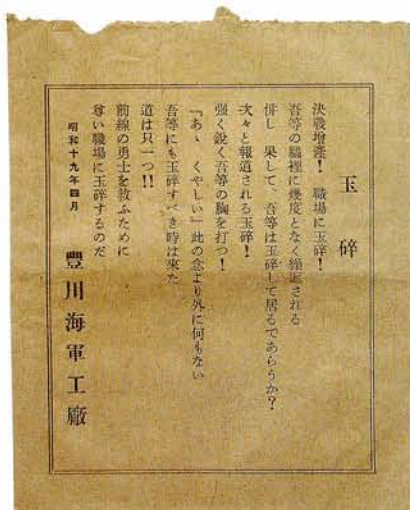 玉碎
決戰增產！　職場に玉碎！
吾等の腦裡に幾度となく繰返される
併し　果して、吾等は玉碎して居るであらうか？
次々と報道される玉碎！
强く銳く吾等の胸を打つ！
「あゝ　くやしい」此の念より外に何もない
吾等にも玉碎すべき時は來た
道は只一つ!!
前線の勇士を救ふために
尊い職場に玉碎するのだ
昭和十九年四月
豐川海軍工廠